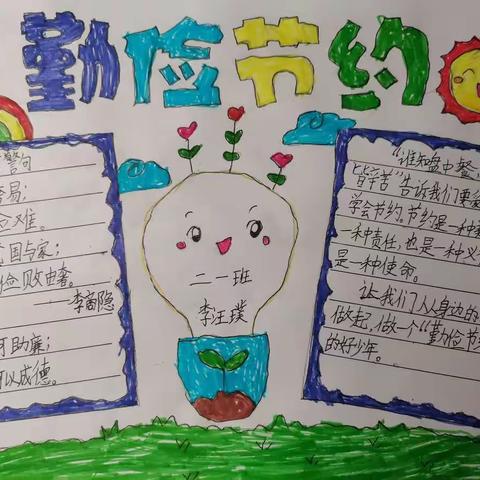 勤俭节约
警句
居;
难。
国与家;
俭败由奢。
——李商隐
可助廉;
可以成德。
二一班
李汪璞
"谁知盘中餐,
皆辛苦"告诉我们要
学会节约。节约是一种
一种责任,也是一种义
是一种使命。
让我们人人身边的
做起,做一个"勤俭节
的好少年。